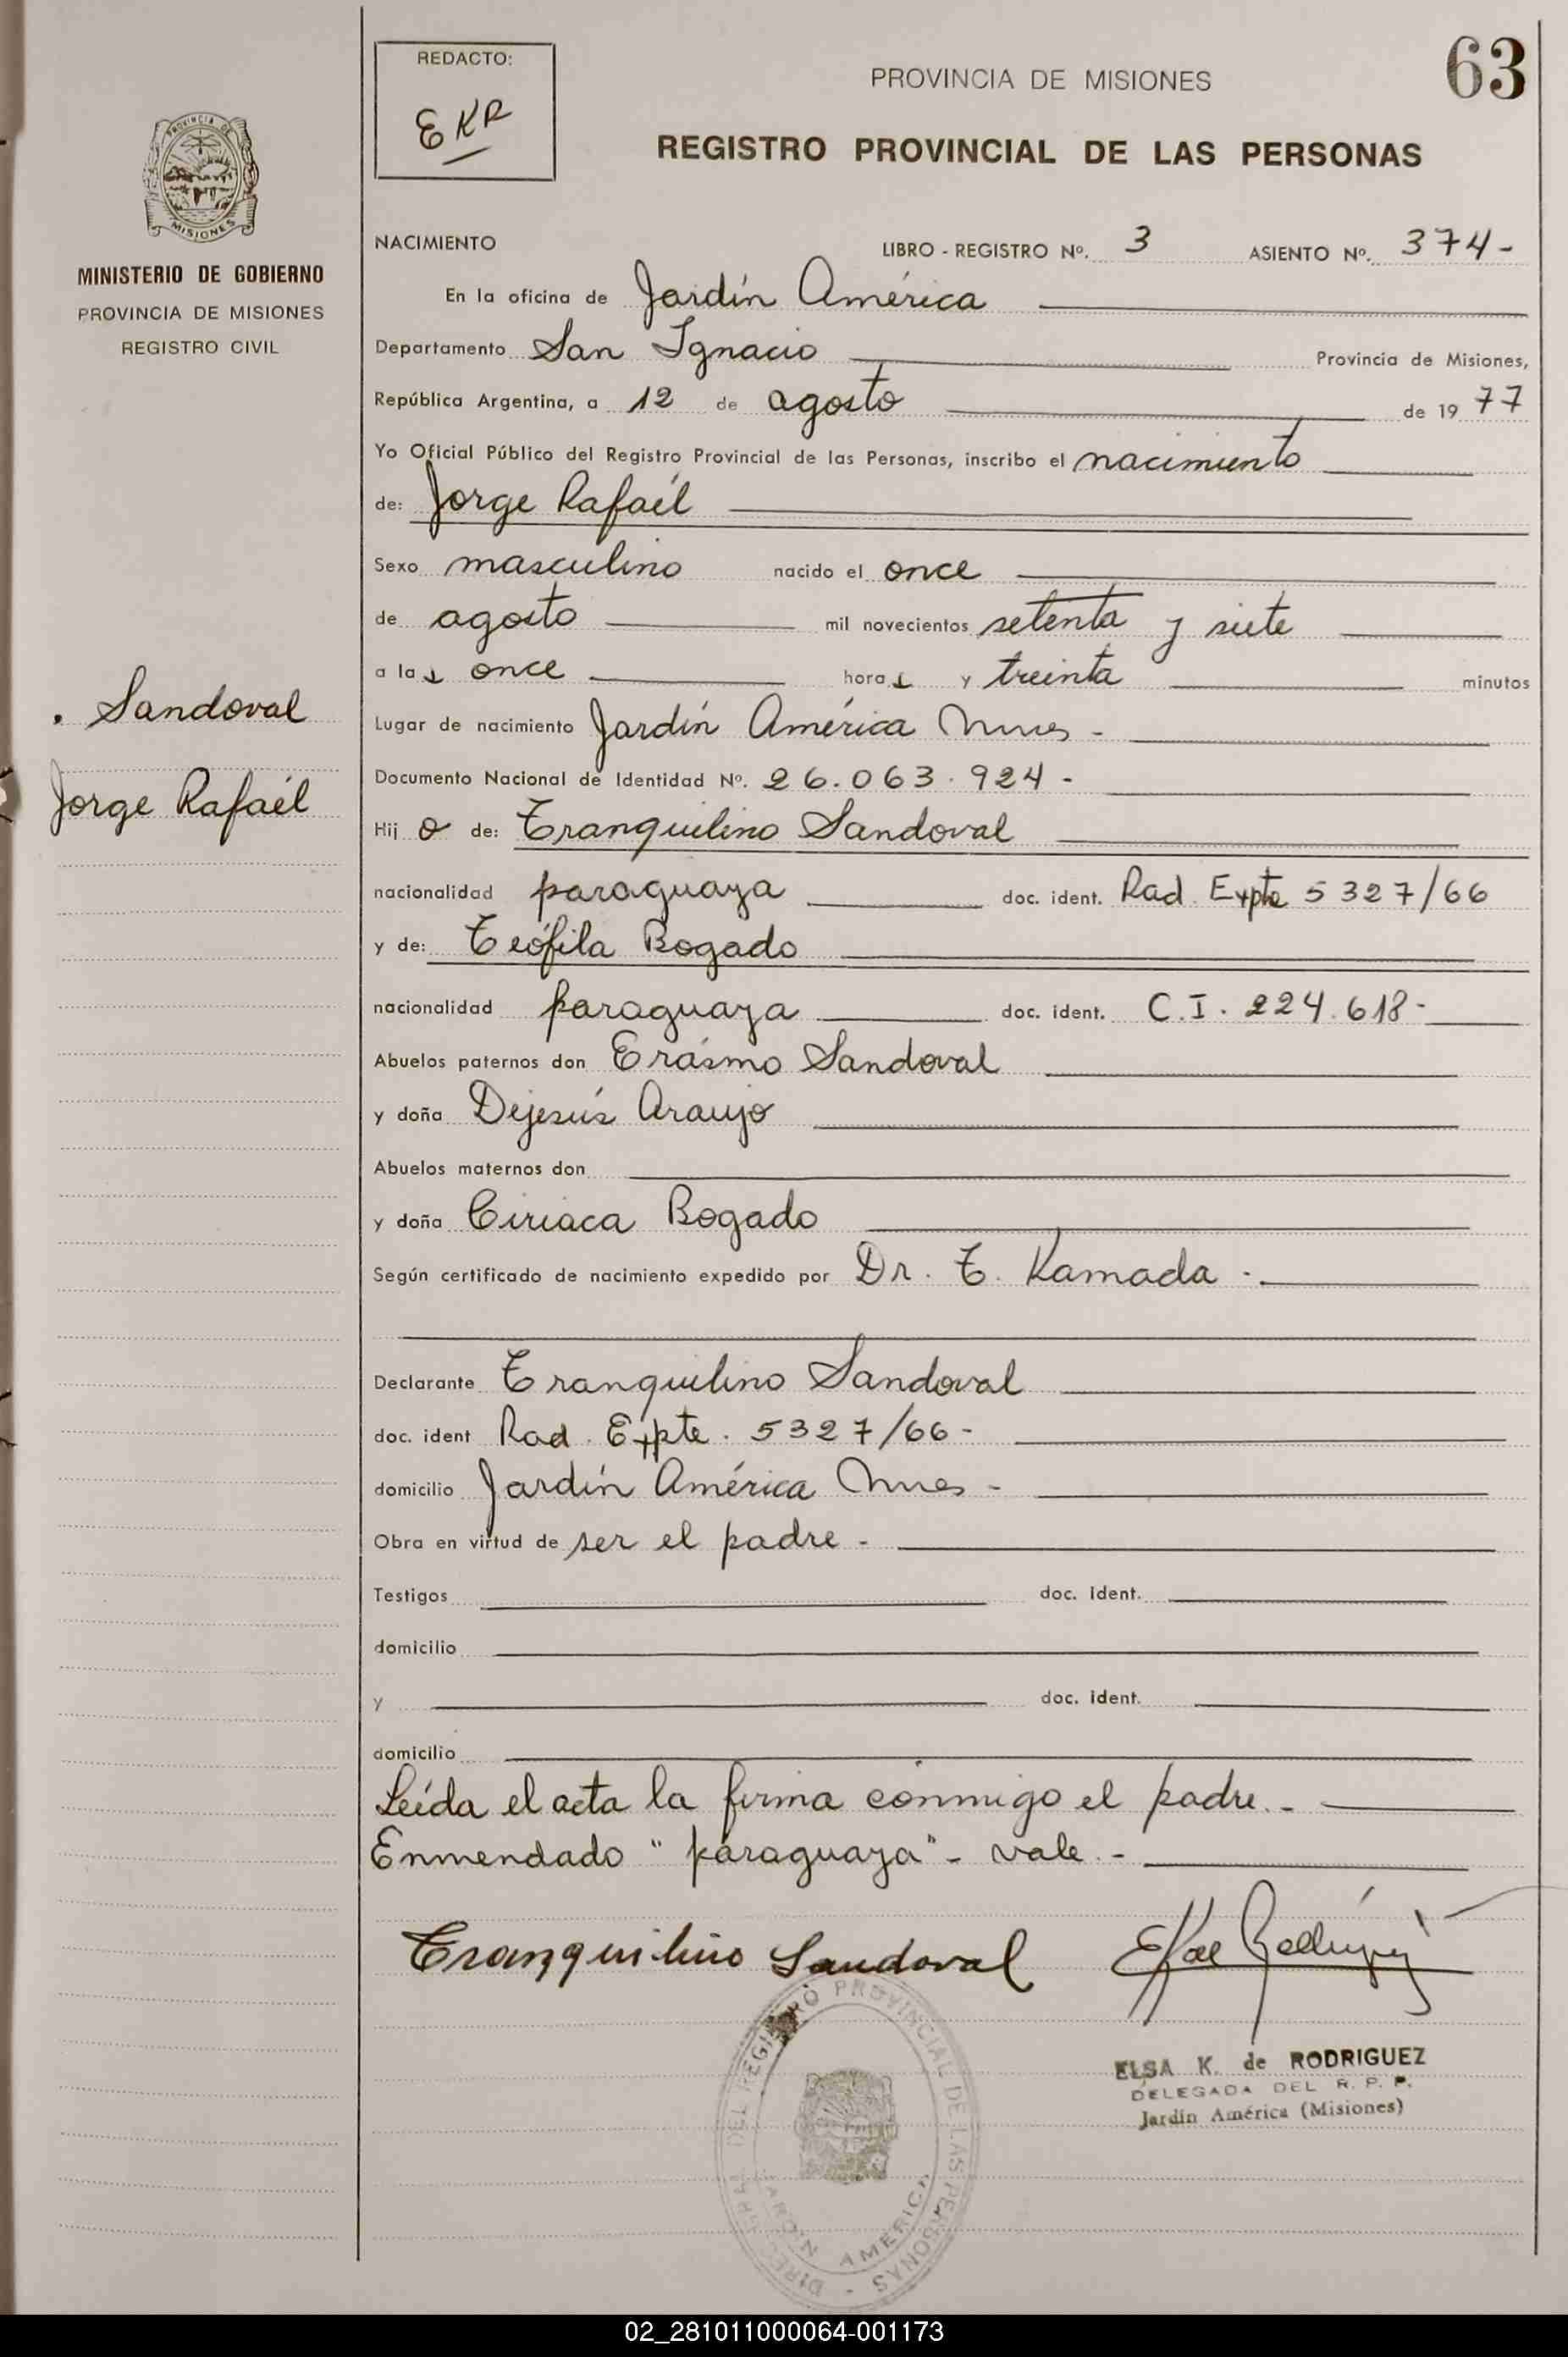 63
REDACTO:
EKR
PROVINCIA DE MISIONES
REGISTRO PROVINCIAL DE LAS PERSONAS
PROVINCIA DE
MISIONES
MINISTERIO DE GOBIERNO
PROVINCIA DE MISIONES
REGISTRO CIVIL
Sandoval
Jorge Rafaél
NACIMIENTO LIBRO - REGISTRO Nº. 3 ASIENTO Nº. 374-
En la oficina de Jardín América
Departamento San Ignacio Provincia de Misiones,
República Argentina, a 12 de agosto de 19 77
Yo Oficial Público del Registro Provincial de las Personas, inscribo el nacimiento
de: Jorge Rafaél
Sexo masculino nacido el once
de agosto mil novecientos setenta y siete
a las once horas y treinta minutos
Lugar de nacimiento Jardín América Mnes -
Documento Nacional de Identidad Nº. 26.063.924 -
Hijo de: Tranquilino Sandoval
nacionalidad paraguaya doc. ident. Rad. Expte 5327/66
y de: Teófila Bogado
nacionalidad paraguaya doc. ident. C.I. 224.618-
Abuelos paternos don Erásmo Sandoval
y doña Dejesús Araujo
Abuelos maternos don
y doña Ciriaca Bogado
Según certificado de nacimiento expedido por Dr. T. Kamada -
Declarante Tranquilino Sandoval
doc. ident Rad. Expte. 5327/66-
domicilio Jardín América Mnes -
Obra en virtud de ser el padre -
Testigos doc. ident.
domicilio
y doc. ident.
domicilio
Leída el acta la firma conmigo el padre. -
Enmendado "paraguaya" - vale. -
Tranquilino Sandoval
ELSA K. de RODRIGUEZ
DELEGADA DEL R. P. P.
Jardín América (Misiones)
DEL REGISTRO PROVINCIAL DE LAS PERSONAS
JARDIN AMERICA
02_281011000064-001173